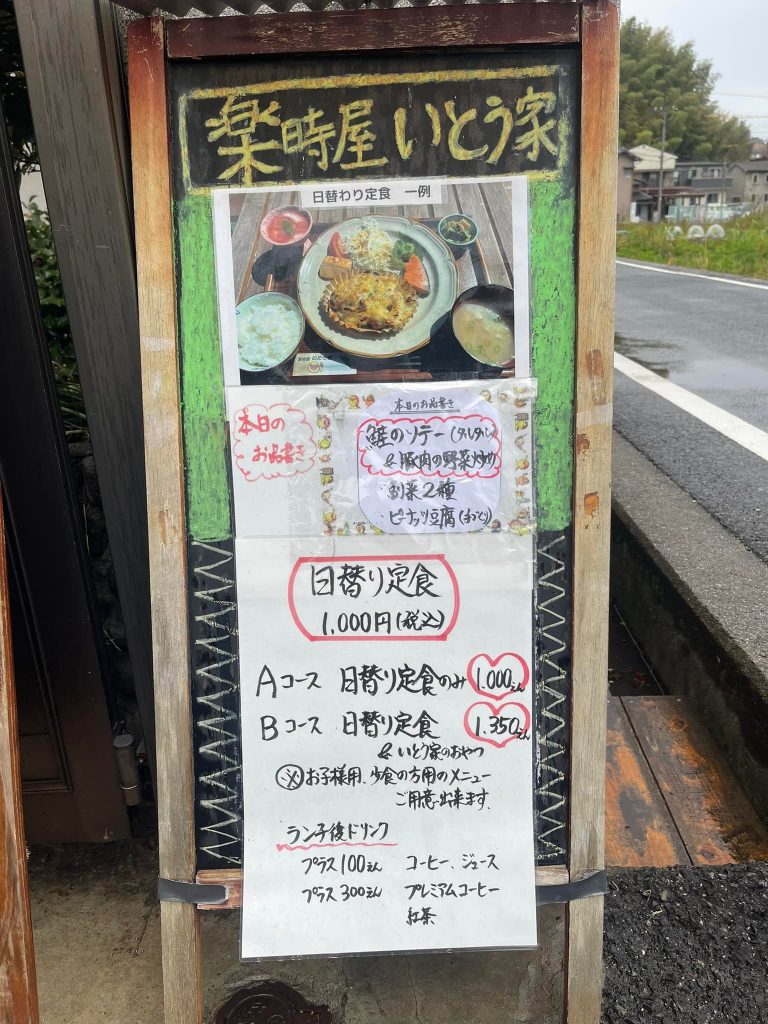 楽時屋 いとう家
日替わり定食 一例
本日の
お品書き
本日のお品書き
鮭のソテー(タルタル)
& 豚肉の野菜炒め
・副菜2種
・ピーナッツ豆腐
日替り定食
1,000円(税込)
Aコース 日替り定食のみ 1.000えん
Bコース 日替り定食 1.350えん
& いとう家のおやつ
※お子様用、少食の方用のメニュー
ご用意出来ます。
ランチ後ドリンク
プラス100えん コーヒー、ジュース
プラス300えん プレミアムコーヒー
紅茶